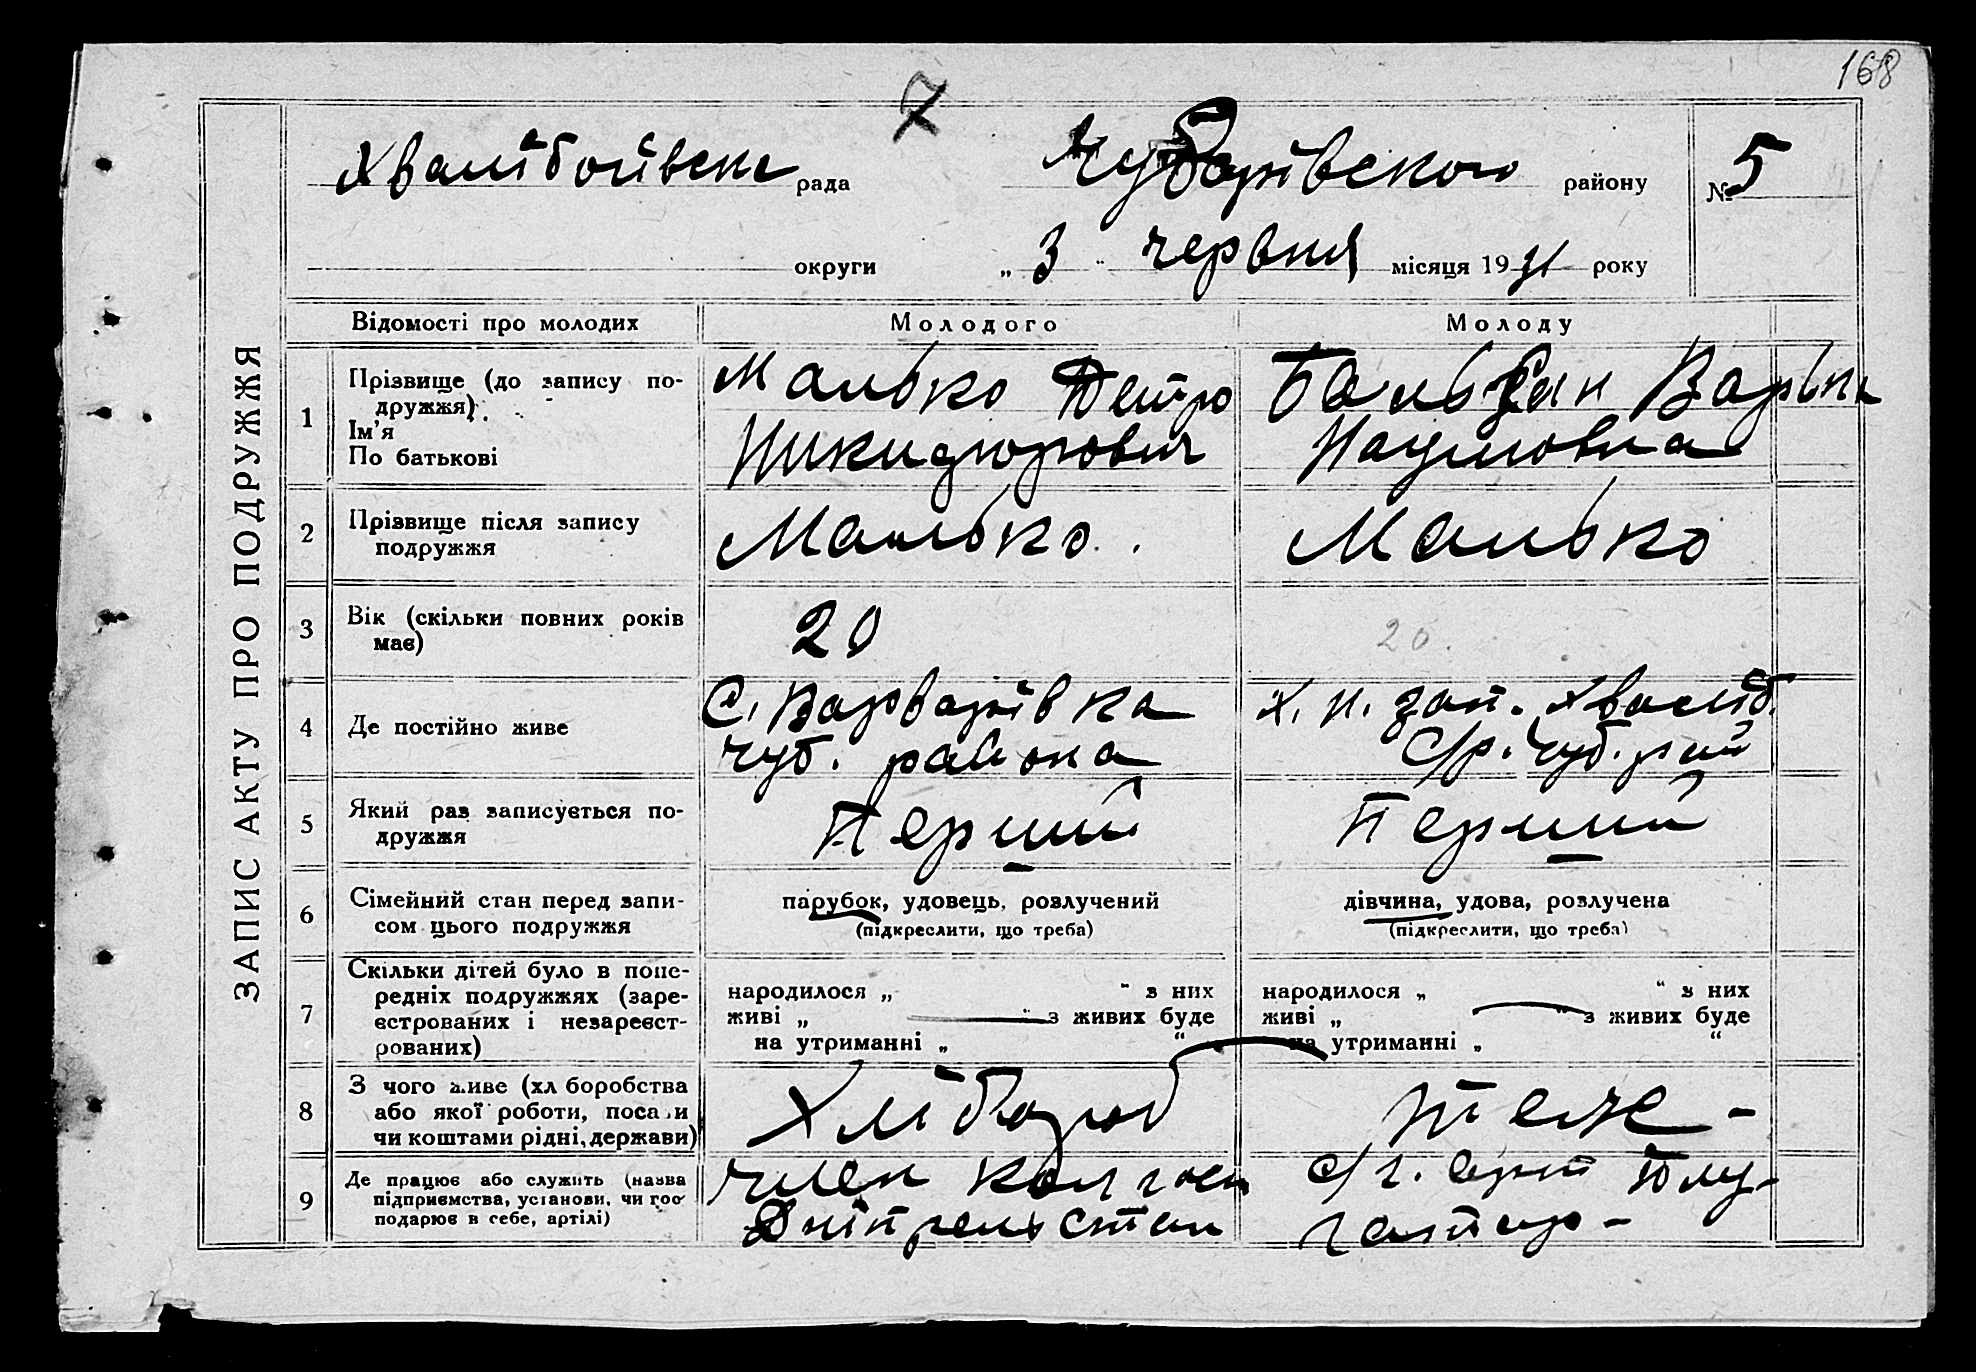 168
7
ЗАПИС АКТУ ПРО ПОДРУЖЖЯ
Хвалібоівська рада Чубарівского району № 5
округи „ 3 " червня місяця 19 31 року
Відомості про молодих Молодого Молоду
1 Прізвище (до запису по-
дружжя)
Ім'я
По батькові
Малько Петро
Никидорович
Варька
Наумовна
2 Прізвище після запису
подружжя
Малько. Малько
3 Вік (скільки повних років
має)
20 20.
4 Де постійно живе
С. Варварівка
Чуб. района
х. н. зап. Хваліб.
С/р. Чуб. рай
5 Який раз записується по-
дружжя
Перший Перший
6 Сімейний стан перед запи-
сом цього подружжя
парубок, удовець, розлучений
(підкреслити, що треба)
дівчина, удова, розлучена
(підкреслити, що треба)
7 Скільки дітей було в попе-
редніх подружжях (заре-
єстрованих і незареєст-
рованих)
народилося „ " з них
живі „ " з живих буде
на утриманні „ "
народилося „ " з них
живі „ " з живих буде
на утриманні „ "
8 З чого живе (хл боробства
або якої роботи, поса и
чи коштами рідні, держави)
Хлібороб теж -
9 Де працює або служить (назва
підприємства, установи, чи гос
подарює в себе, артілі)
член колгосп
с/г. арт Плу-
гатар -